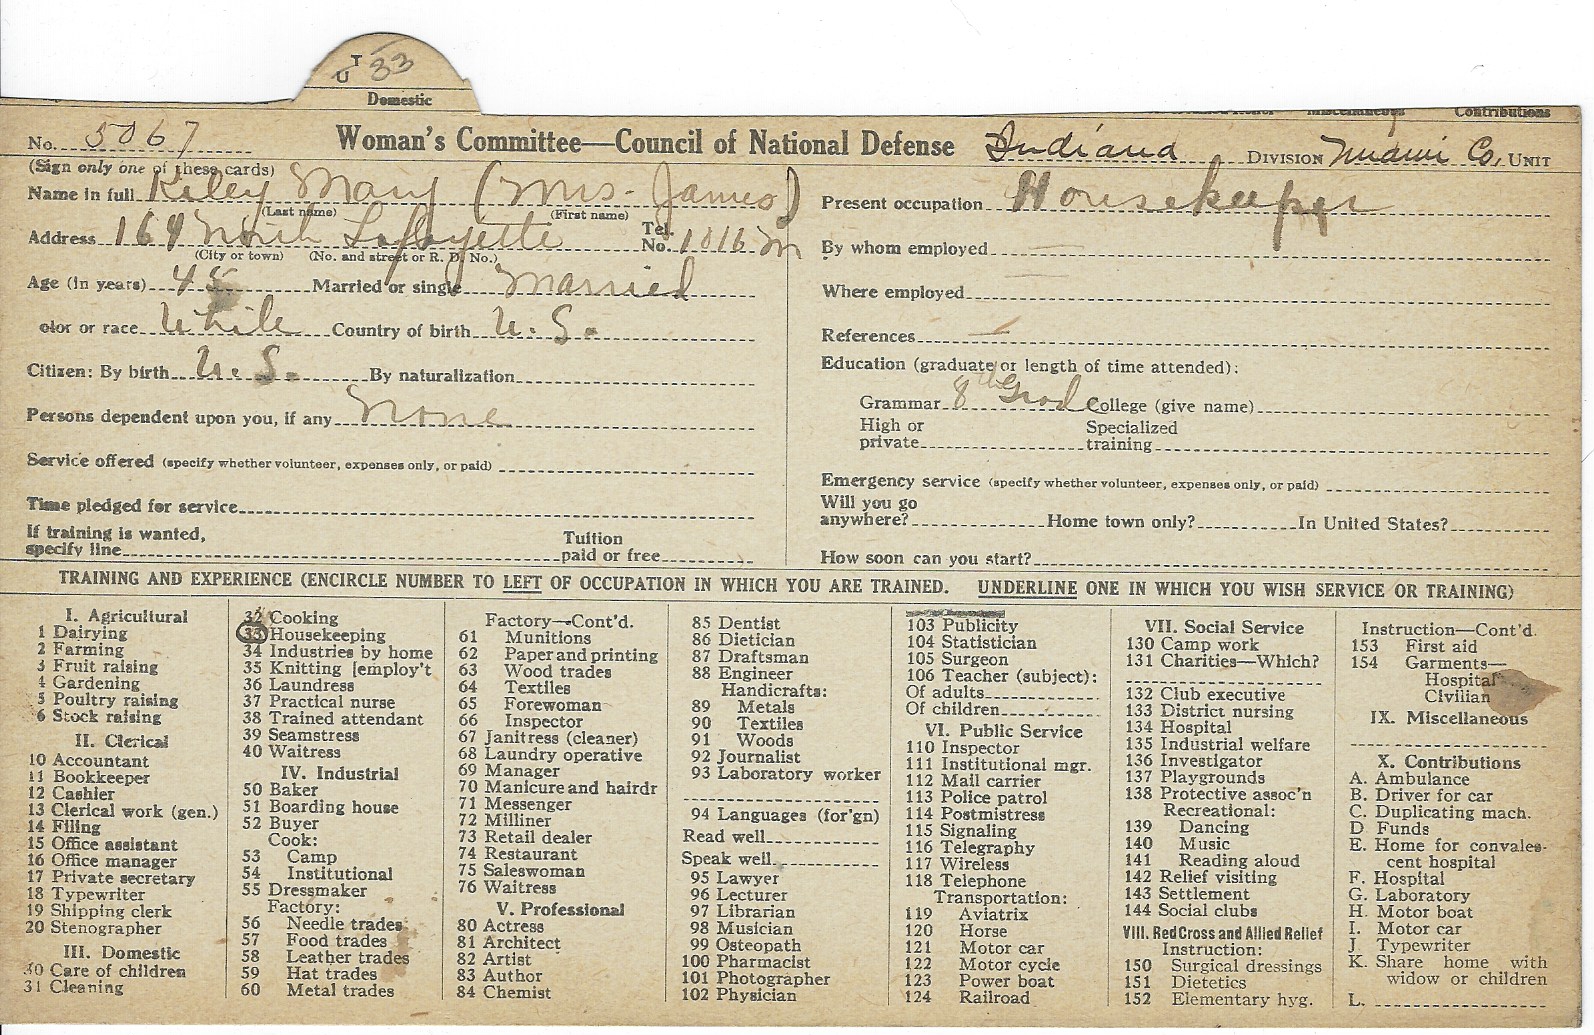 T
U 33
Domestic
Miscellaneous Contributions
No. 5067 Woman's Committee—Council of National Defense Indiana DIVISION Miami Co. UNIT
(Sign only one of these cards)
Name in full Kiley Mary (Mrs. James)
(Last name) (First name)
Address 164 North Lafayette Tel. No. 1016 M
(City or town) (No. and street or R. D. No.)
Age (in years) 45 Married or single Married
olor or race White Country of birth U. S.
Citizen: By birth U. S. By naturalization
Persons dependent upon you, if any None
Service offered (specify whether volunteer, expenses only, or paid)
Time pledged for service
If training is wanted,
specify line Tuition paid or free
Present occupation Housekeeper
By whom employed —
Where employed —
References —
Education (graduate or length of time attended):
Grammar 8th Grade College (give name)
High or private Specialized training
Emergency service (specify whether volunteer, expenses only, or paid)
Will you go
anywhere? Home town only? In United States?
How soon can you start?
TRAINING AND EXPERIENCE (ENCIRCLE NUMBER TO LEFT OF OCCUPATION IN WHICH YOU ARE TRAINED. UNDERLINE ONE IN WHICH YOU WISH SERVICE OR TRAINING)
I. Agricultural
1 Dairying
2 Farming
3 Fruit raising
4 Gardening
5 Poultry raising
6 Stock raising
II. Clerical
10 Accountant
11 Bookkeeper
12 Cashier
13 Clerical work (gen.)
14 Filing
15 Office assistant
16 Office manager
17 Private secretary
18 Typewriter
19 Shipping clerk
20 Stenographer
III. Domestic
30 Care of children
31 Cleaning
32 Cooking
33 Housekeeping
34 Industries by home
35 Knitting [employ't
36 Laundress
37 Practical nurse
38 Trained attendant
39 Seamstress
40 Waitress
IV. Industrial
50 Baker
51 Boarding house
52 Buyer
Cook:
53 Camp
54 Institutional
55 Dressmaker
Factory:
56 Needle trades
57 Food trades
58 Leather trades
59 Hat trades
60 Metal trades
Factory—Cont'd.
61 Munitions
62 Paper and printing
63 Wood trades
64 Textiles
65 Forewoman
66 Inspector
67 Janitress (cleaner)
68 Laundry operative
69 Manager
70 Manicure and hairdr
71 Messenger
72 Milliner
73 Retail dealer
74 Restaurant
75 Saleswoman
76 Waitress
V. Professional
80 Actress
81 Architect
82 Artist
83 Author
84 Chemist
85 Dentist
86 Dietician
87 Draftsman
88 Engineer
Handicrafts:
89 Metals
90 Textiles
91 Woods
92 Journalist
93 Laboratory worker
94 Languages (for'gn)
Read well
Speak well
95 Lawyer
96 Lecturer
97 Librarian
98 Musician
99 Osteopath
100 Pharmacist
101 Photographer
102 Physician
103 Publicity
104 Statistician
105 Surgeon
106 Teacher (subject):
Of adults
Of children
VI. Public Service
110 Inspector
111 Institutional mgr.
112 Mail carrier
113 Police patrol
114 Postmistress
115 Signaling
116 Telegraphy
117 Wireless
118 Telephone
Transportation:
119 Aviatrix
120 Horse
121 Motor car
122 Motor cycle
123 Power boat
124 Railroad
VII. Social Service
130 Camp work
131 Charities—Which?
132 Club executive
133 District nursing
134 Hospital
135 Industrial welfare
136 Investigator
137 Playgrounds
138 Protective assoc'n
Recreational:
139 Dancing
140 Music
141 Reading aloud
142 Relief visiting
143 Settlement
144 Social clubs
VIII. Red Cross and Allied Relief
Instruction:
150 Surgical dressings
151 Dietetics
152 Elementary hyg.
Instruction—Cont'd.
153 First aid
154 Garments—
Hospital
Civilian
IX. Miscellaneous
X. Contributions
A. Ambulance
B. Driver for car
C. Duplicating mach.
D Funds
E. Home for convales-
cent hospital
F. Hospital
G. Laboratory
H. Motor boat
I. Motor car
J. Typewriter
K. Share home with
widow or children
L.